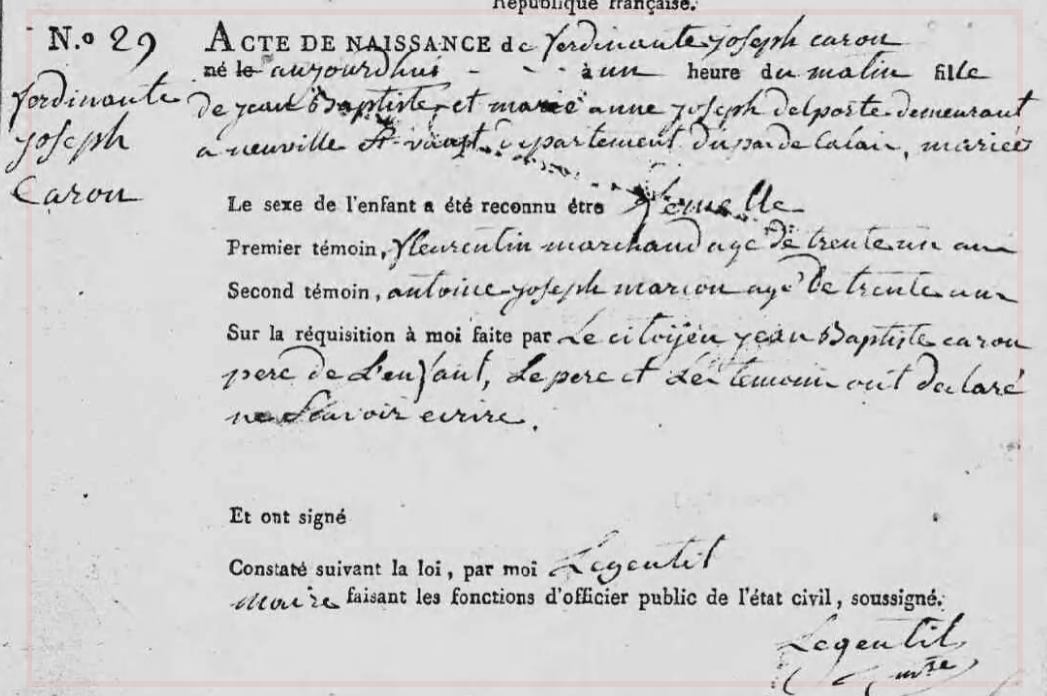 République française.
N.o 29 ACTE DE NAISSANCE de ferdinante joseph caron
né le aujourdhui - - à un heure du matin fille
ferdinante
joseph
Caron
de jean Baptiste et marie anne joseph delporte demeurant
a neuville St vaast departement du pas de Calais, mariés
Le sexe de l'enfant a été reconnu être femelle
Premier témoin, fleurentin marchand agé de trente un ans
Second témoin, antoine joseph marion agé de trente ans
Sur la réquisition à moi faite par Le citoyen jean Baptiste caron
pere de L'enfant, Le pere et Les temoins ont declaré
ne Scavoir ecrire.
Et ont signé
Constaté suivant la loi, par moi Legentil
maire faisant les fonctions d'officier public de l'état civil, soussigné.
Legentil
mre